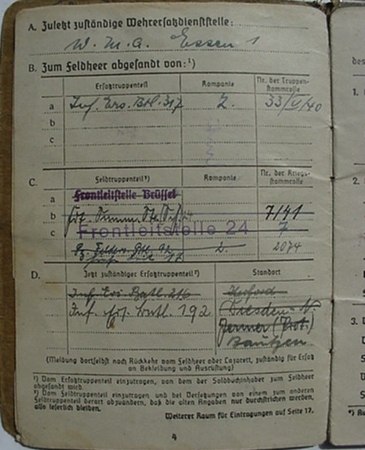 A. Zuletzt zuständige Wehrersatzdienststelle:
W. M. A. Essen 1
B. Zum Feldheer abgesandt von:¹)
Ersatztruppenteil Kompanie Nr. der Truppenstammrolle
a Inf. Ers. Btl. 317 2. 33/4/40
b
c
C. Feldtruppenteil²) Kompanie Nr. der Kriegsstammrolle
a Frontleitstelle Brüssel
b 7/41
Frontleitstelle 24
c 2. 2074
D. Jetzt zuständiger Ersatztruppenteil²) Standort
Inf. Ers. Batl. 216 Herford
Inf. Ers. Batl. 192 Dresden-N.
Bautzen
(Meldung dortselbst nach Rückkehr vom Feldheer oder Lazarett, zuständig für Ersatz
an Bekleidung und Ausrüstung)
¹) Vom Ersatztruppenteil einzutragen, von dem der Soldbuchinhaber zum Feldheer
abgesandt wird.
²) Vom Feldtruppenteil einzutragen und bei Versetzungen von einem zum anderen
Feldtruppenteil derart abzuändern, daß die alten Angaben nur durchstrichen werden,
also leserlich bleiben.
Weiterer Raum für Eintragungen auf Seite 17.
4